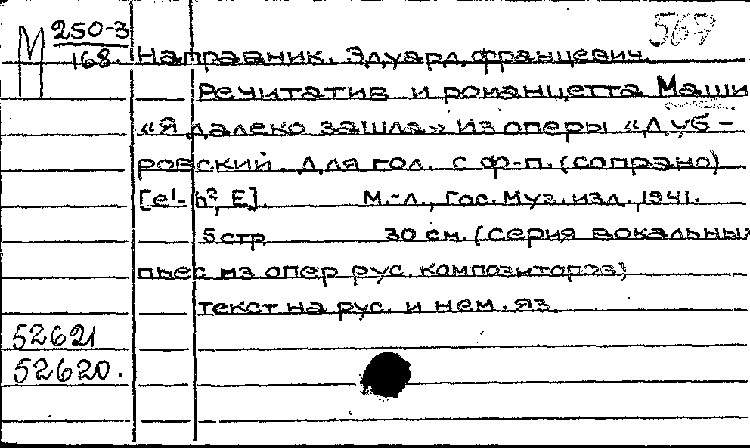 М 250-3
168.
567
Направник, Эдуард Францевич.
Речитатив и романцетта Маши
«Я далеко зашла» из оперы «Дуб-
ровский. Для гол. с ф-п. (сопрано)
[e¹- h², E]. М.-Л., Гос. Муз. изд., 1941.
5 стр 30 см. (Серия вокальных
пьес из опер рус. композиторов)
текст на рус. и нем. яз.
52621
52620.